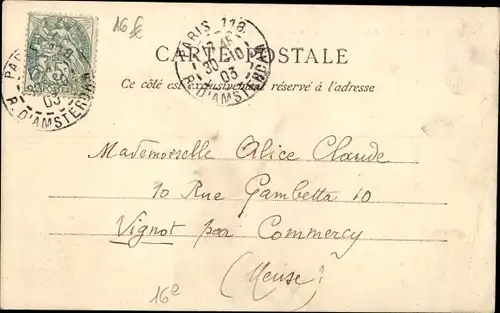 16 f
PARIS 118
30 -10
03
R. D'AMSTERDAM
CARTE POSTALE
Ce côté est exclusivement réservé à l'adresse
03
R. D'AMSTERDAM
Mademoiselle Alice Claude
10 Rue Gambetta 10
Vignot par Commercy
(Meuse)
16e